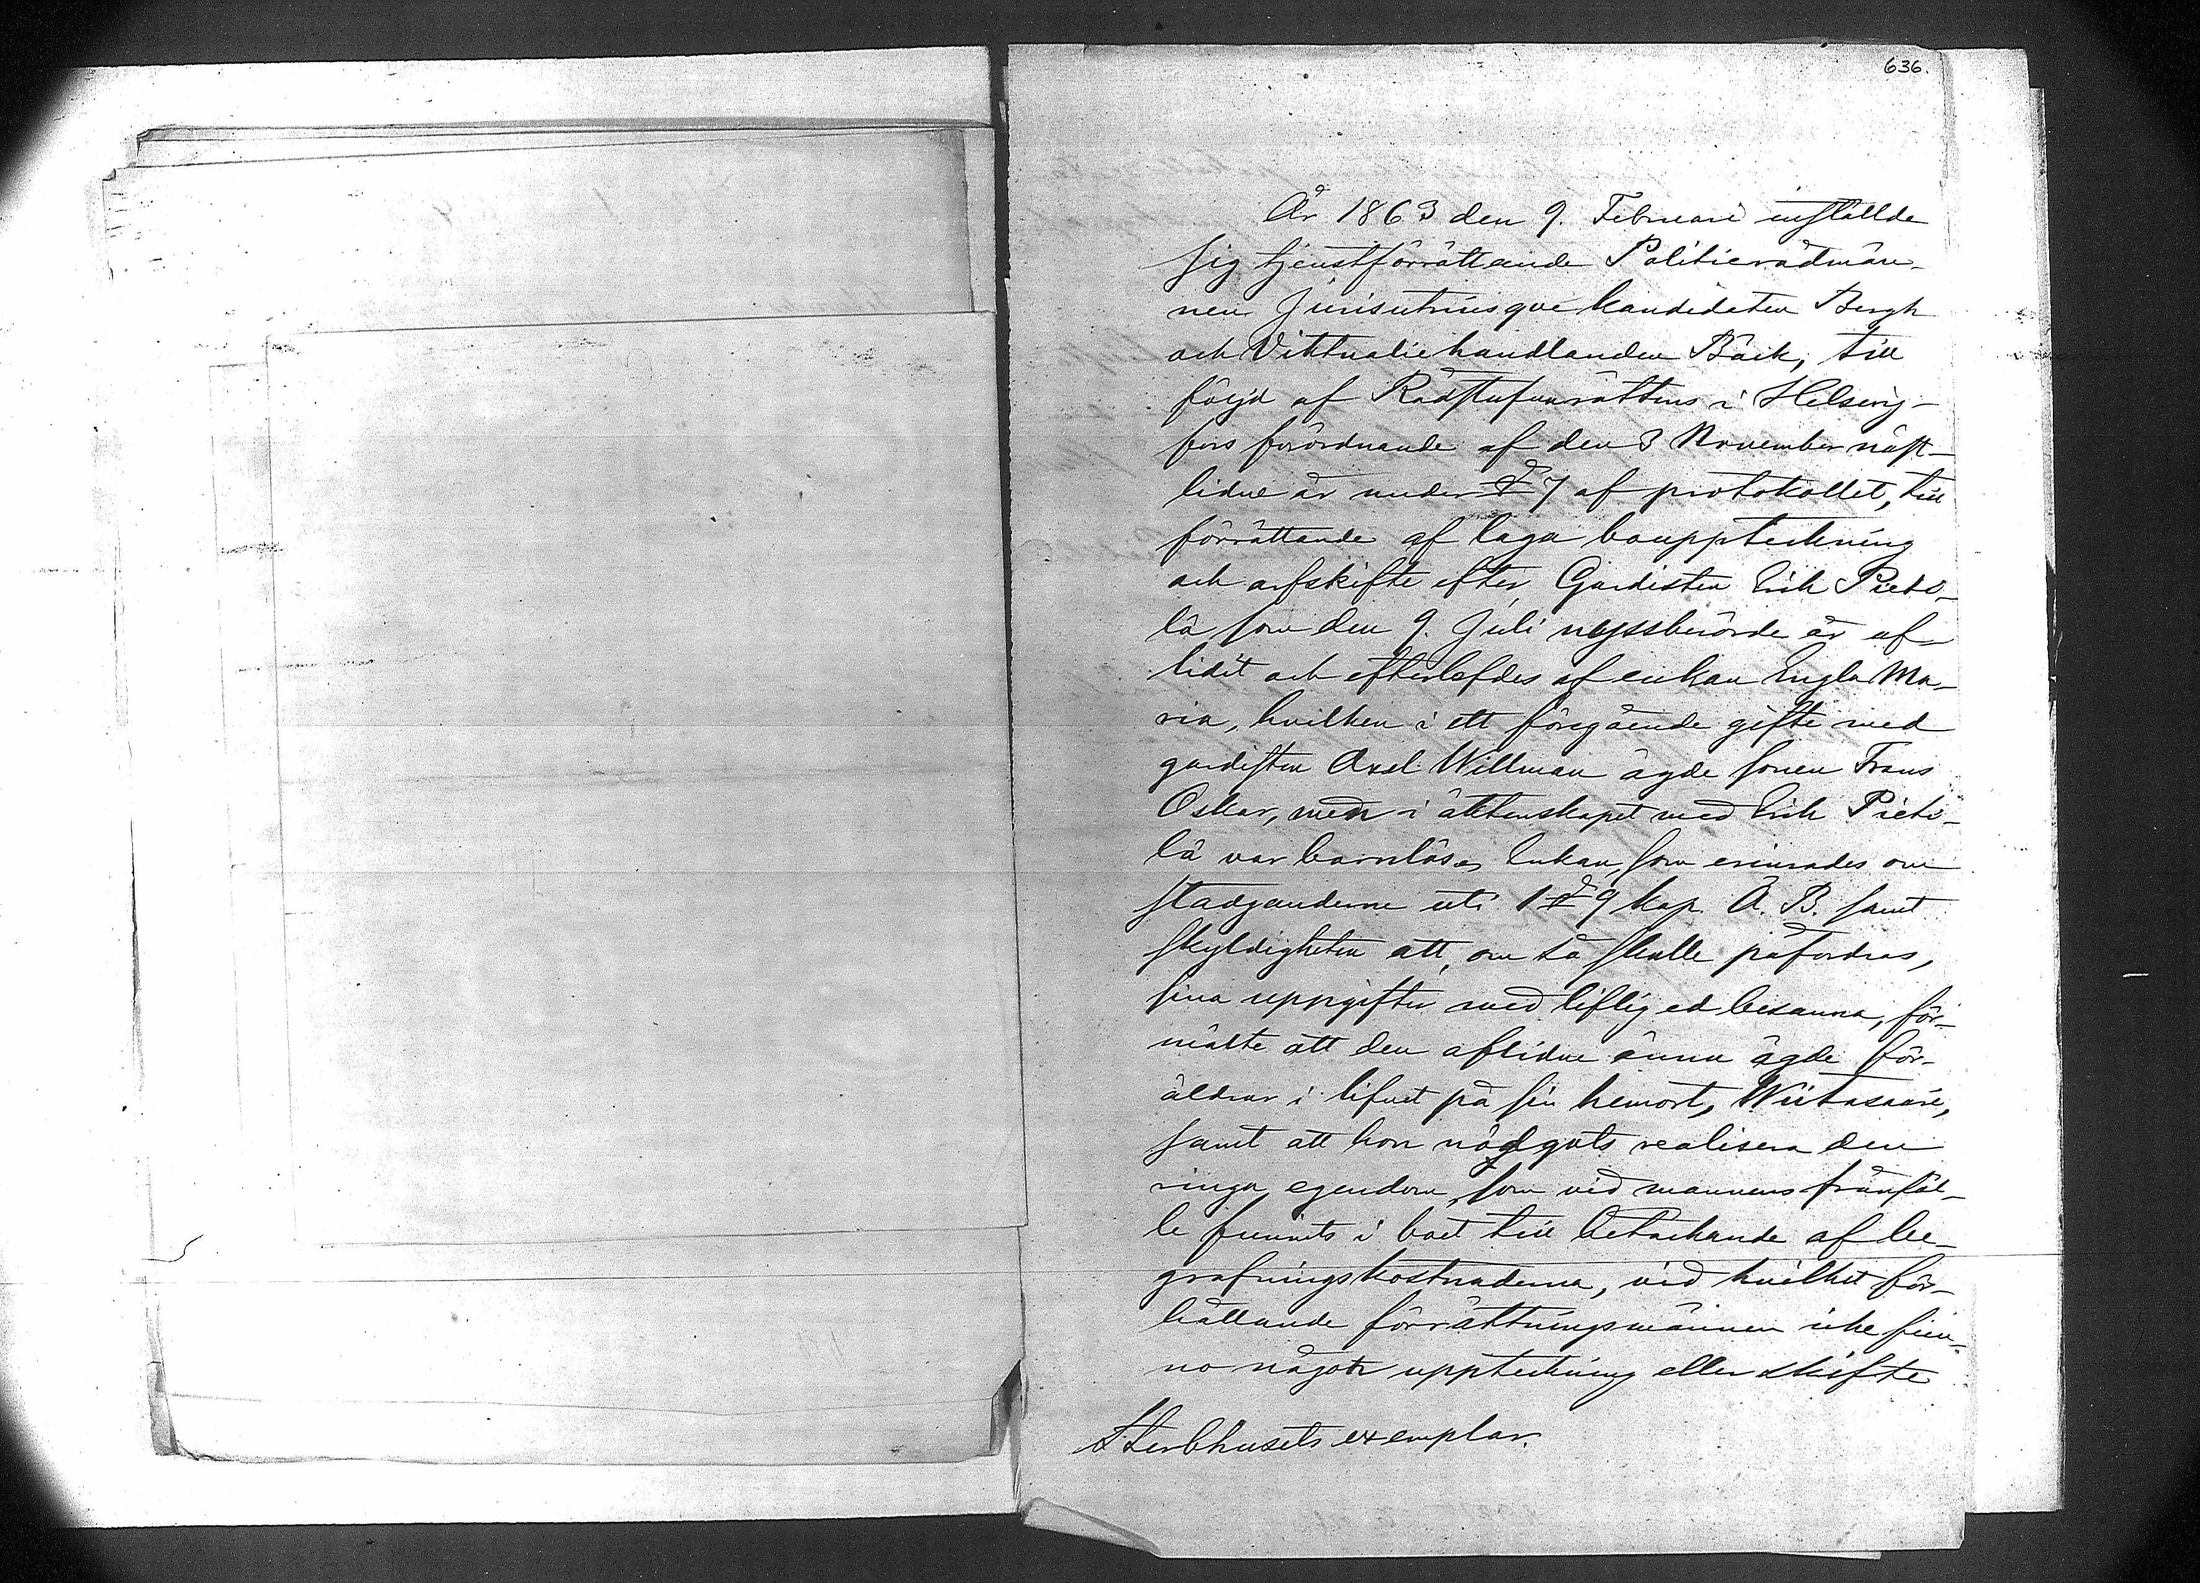 636.
År 1863 den 9. Februari instälde
sig tjenstförrättande Politierådmän-
nen Jurisutriusque kandidaten Bergh
och Viktualiehandlanden Bäck, till
följd af Rådstufvurättens i Helsing-
fors förordnande af den 3 November näst-
lidne år under § 7 af protokollet, till
förrättande af laga bouppteckning
och arfskifte efter Gardisten Erik Pieti-
lä som den 9. Juli nyssberörde år af-
lidit och efterlefdes af enkan Engla Ma-
ria, hvilken i ett föregående gifte med
gardisten Axel Willman ägde sonen Frans
Oskar, men i äktenskapet med Erik Pieti-
lä var barnlös. Enkan, som erinrades om
stadganderne uti 1 § 9 kap. Ä. B. samt
skyldigheten att, om så skulle påfordras,
sina uppgifter med liflig ed besanna, för-
mälte att den aflidne ännu ägde för-
äldrar i lifvet på sin hemort, Wiitasaari,
samt att hon nödgats realisera den
ringa egendom, som vid mannens frånfäl-
le funnits i boet till betäckande af be-
grafningskostnaderna, vid hvilket för-
hållande förrättningsmännen icke fun-
no någon uppteckning eller skifte
Sterbhusets exemplar.